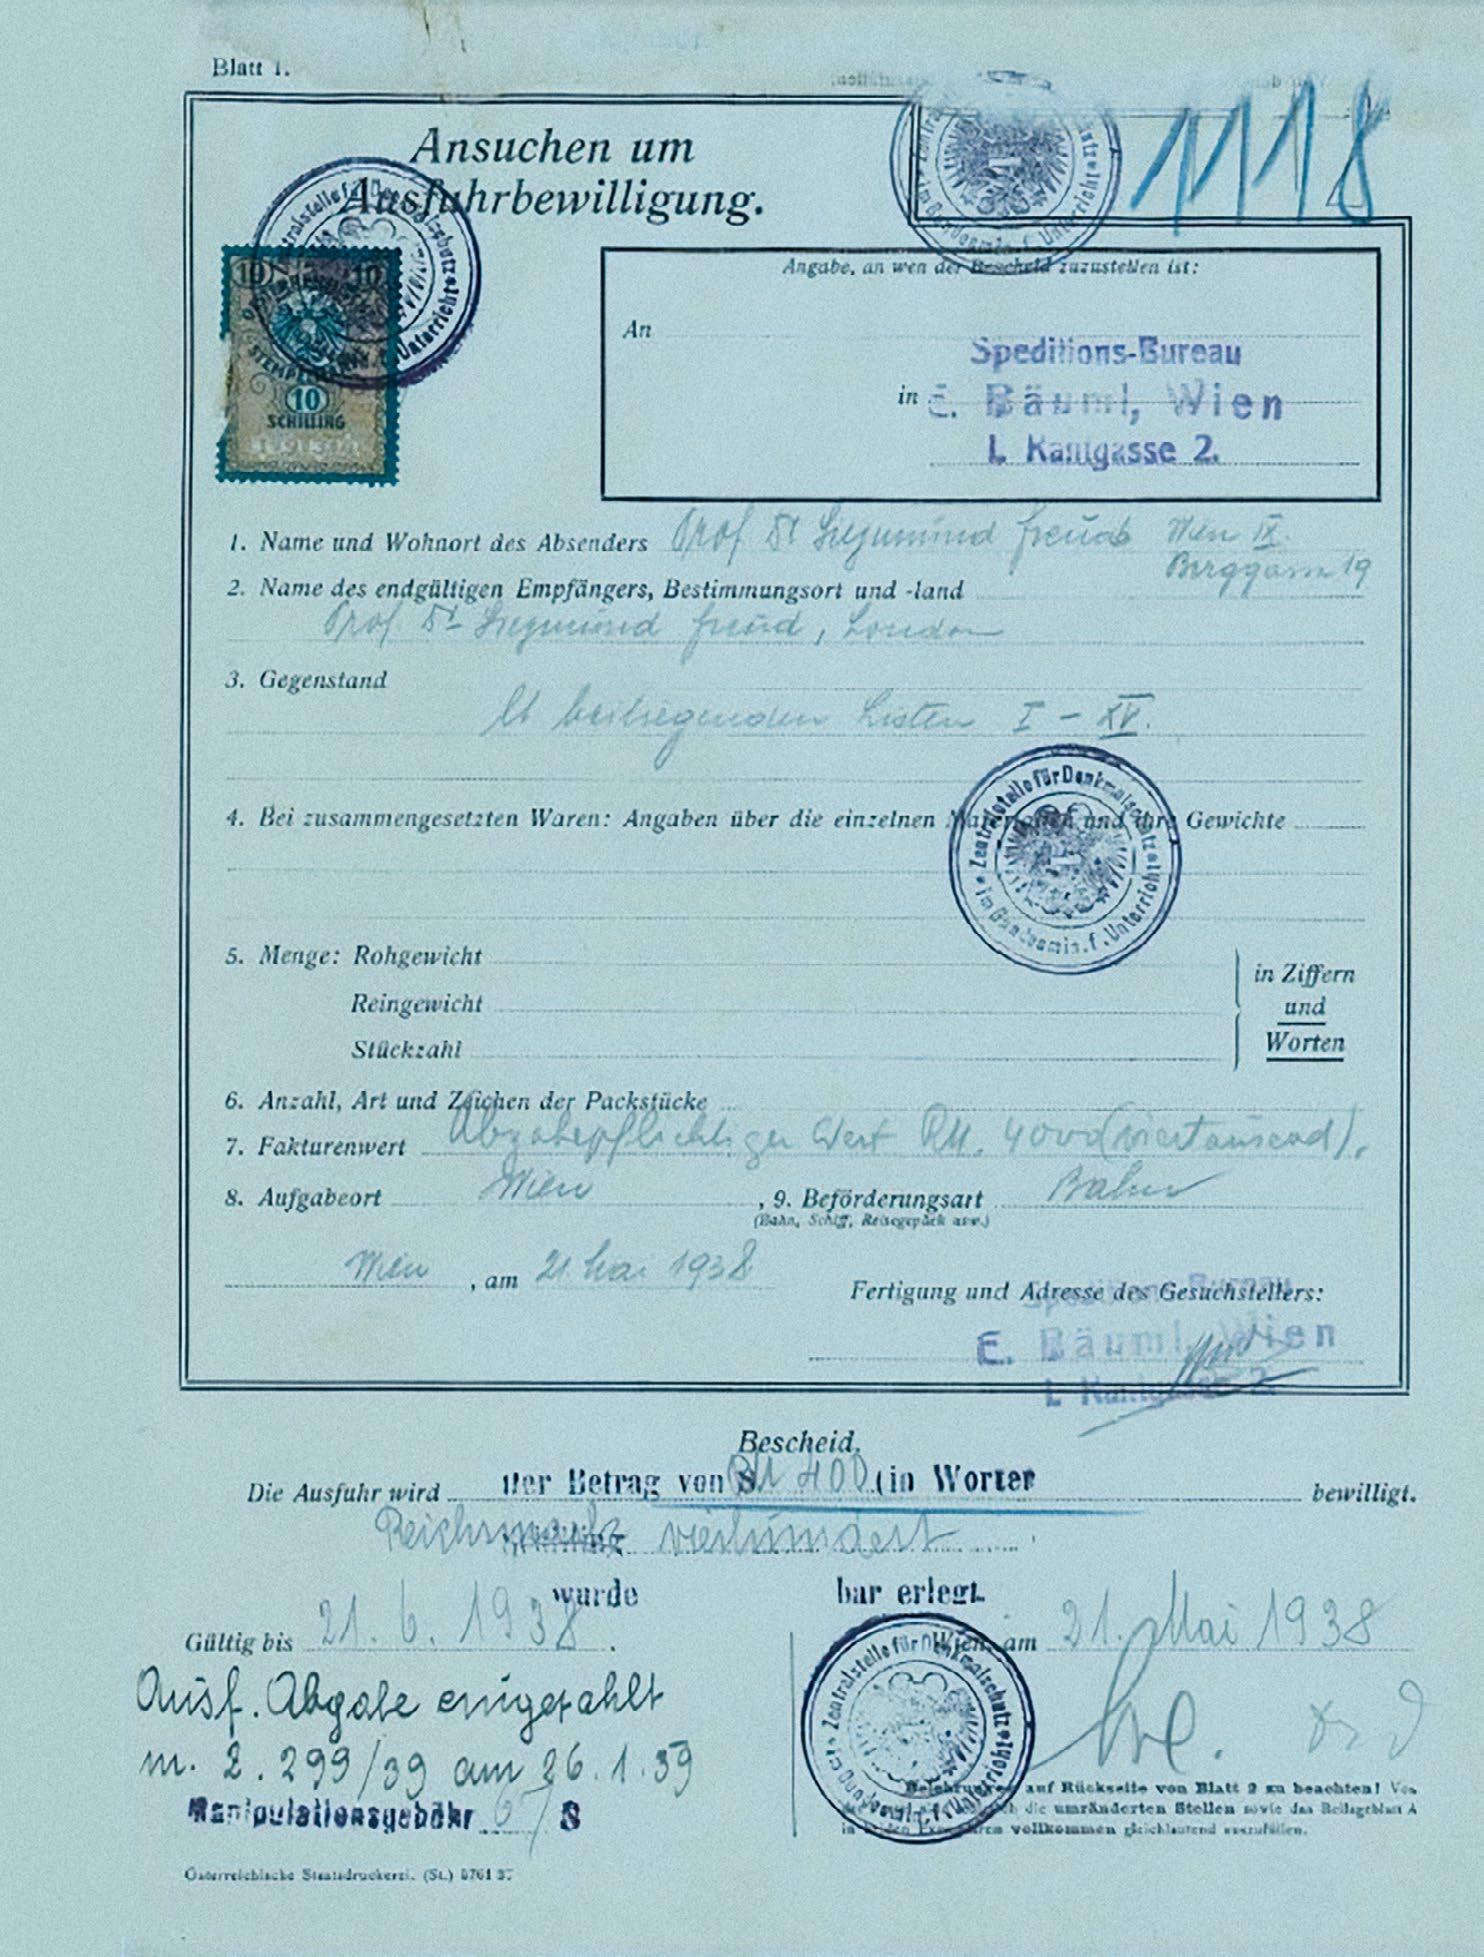 Blatt 1.
Ansuchen um
Ausfuhrbewilligung.
1118
Zentralstelle für Denkmalschutz
im Bundesmin. f. Unterricht
10 10
10
SCHILLING
Angabe, an wen der Bescheid zuzustellen ist:
An
Speditions-Bureau
in E. Bäuml, Wien
I. Rantgasse 2.
1. Name und Wohnort des Absenders Prof Dr Siegmund Freud Wien IX.
Berggasse 19
2. Name des endgültigen Empfängers, Bestimmungsort und -land
Prof Dr Siegmund Freud, London
3. Gegenstand
lt beiliegenden Listen I - XV.
4. Bei zusammengesetzten Waren: Angaben über die einzelnen Materialien und ihre Gewichte
Zentralstelle für Denkmalschutz
im Bundesmin. f. Unterricht
5. Menge: Rohgewicht
Reingewicht
Stückzahl
in Ziffern
und
Worten
6. Anzahl, Art und Zeichen der Packstücke
7. Fakturenwert Abgabepflichtiger Wert RM. 4000 (viertausend).
8. Aufgabeort Wien, 9. Beförderungsart Bahn
(Bahn, Schiff, Reisegepäck usw.)
Wien, am 21. Mai 1938
Fertigung und Adresse des Gesuchstellers:
Speditions-Bureau
E. Bäuml, Wien
I. Rantgasse 2.
Bescheid.
Die Ausfuhr wird Der Betrag von S RM 400 (in Worten bewilligt.
Reichsmark Schilling vierhundert
wurde bar erlegt.
Gültig bis 21. 6. 1938. Wien, am 21. Mai 1938
Ausf. Abgabe eingezahlt
m. Z. 299/39 am 26.1.39
Manipulationsgebühr S
Zentralstelle für Denkmalschutz
im Bundesmin. f. Unterricht
auf Rückseite von Blatt 2 zu beachten! Vor
die umränderten Stellen sowie das Beilageblatt A
in beiden Exemplaren vollkommen gleichlautend auszufüllen.
Österreichische Staatsdruckerei. (St.) 8761 37